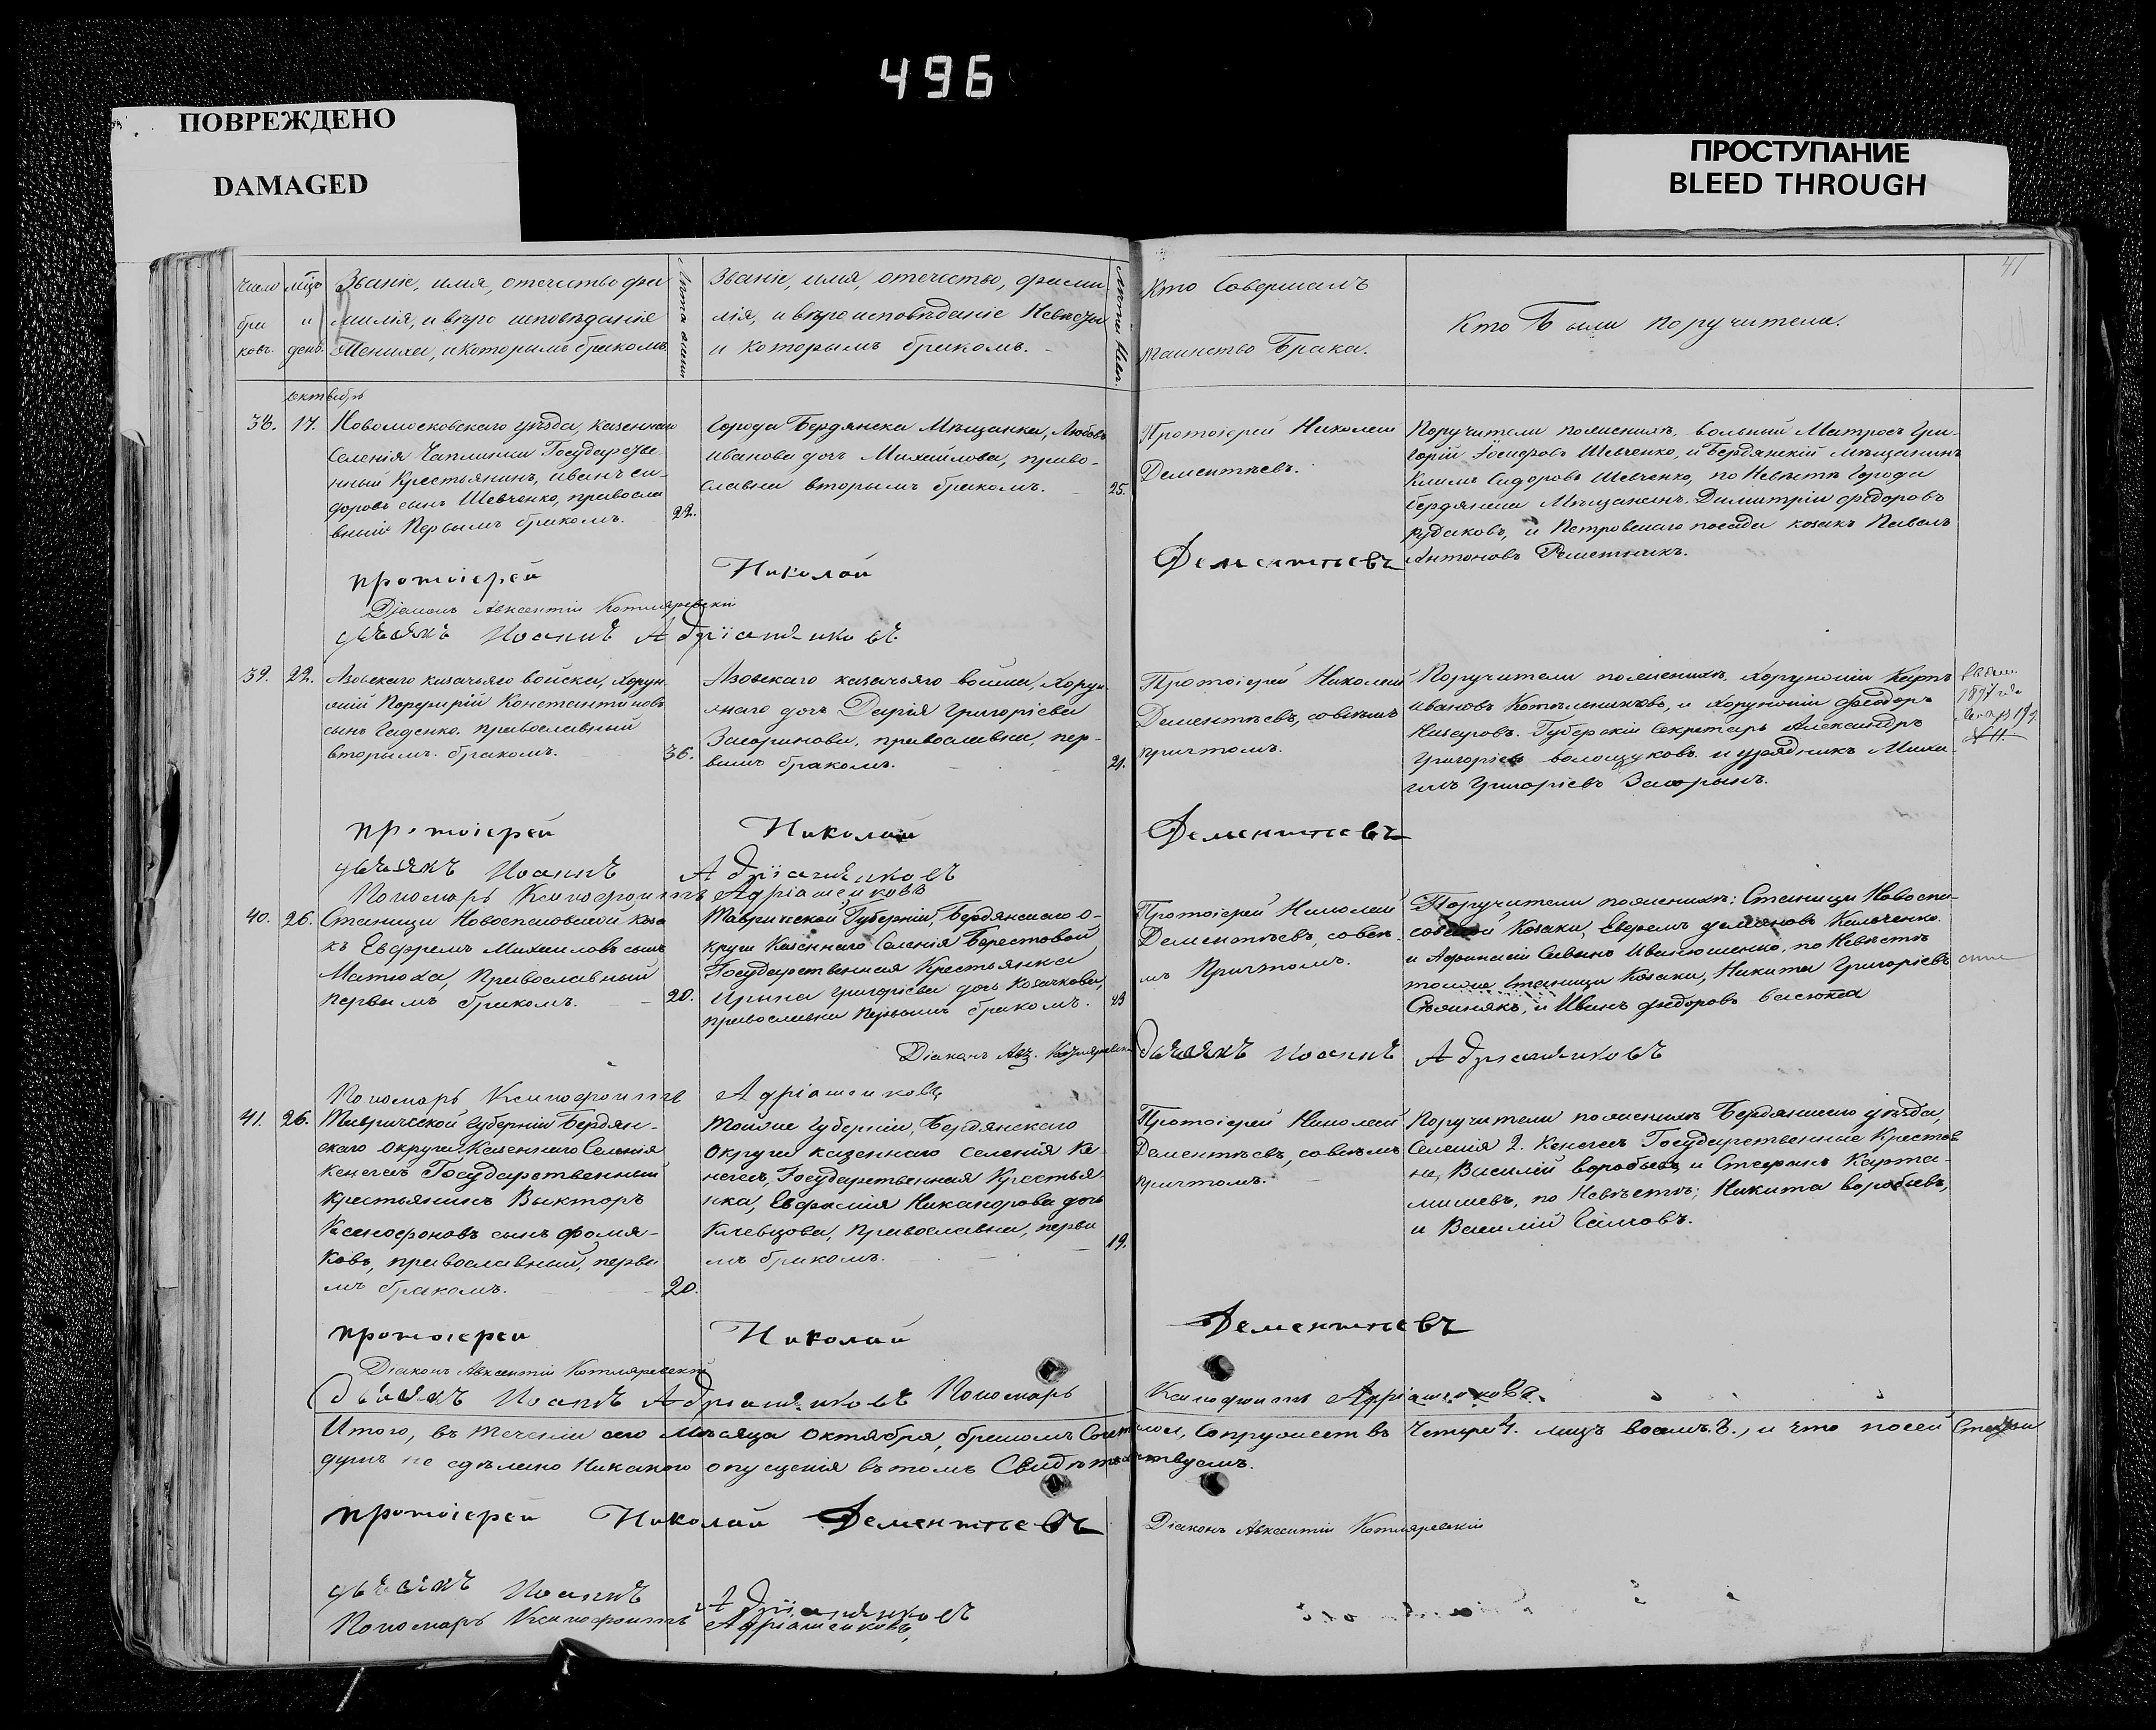 496
ПОВРЕЖДЕНО
DAMAGED
ПРОСТУПАНИЕ
BLEED THROUGH
41
Число
бра
ковъ.
мѣц
и
день.
Званіе, имя, отечество фа
милія, и вѣро исповѣданія
Жениха, и которымъ бракомъ.
Званіе, имя, отечество, фами
лія, и вѣроисповѣданіе Невѣсты
и которымъ бракомъ.
Кто Совершалъ
таинство Брака.
Кто Были поручители.
октябрь
38. 17.
Новомосковскаго уѣзда, казеннаго
Селенія Чаплинки Государстве-
нный Крестьянинъ, Иванъ Си-
доровъ сынъ Шевченко, правосла
вный Первымъ бракомъ.
22.
Города Бердянска Мѣщанка, Любовь
Иванова дочь Михайлова, право-
славна вторымъ бракомъ.
25.
Протоіерей Николай
Дементѣевъ.
Поручители по женихѣ, вольный Матросъ Гри-
горій Іосифовъ Шевченко, и Бердянскій мѣщанинъ
Климъ Сидоровъ Шевченко, по Невѣстѣ Города
Бердянска Мѣщанинъ Димитрій Федоровъ
Рудаковъ, и Петровскаго посада козакъ Павелъ
Антоновъ Решетнякъ.
протоіерей Николай Дементѣевъ
Діаконъ Авксентій Котляревскій
дьячокъ Иоаннъ Адріяшенковъ
39. 22.
Азовскаго казачьяго войска, Хорун
жій Порфирій Константиновъ
сынъ Гаденко. православный
вторымъ бракомъ.
36.
Азовскаго казачьяго войска, Хорун
жаго дочь Дарія Григоріева
православна, пер-
вымъ бракомъ.
21.
Протоіерей Николай
Дементѣевъ, со всѣмъ
причтомъ.
Поручители по женихѣ, Хорунжій Карпъ
Ивановъ Котельниковъ, и Хорунжій Федоръ
Губерскій Секретарь Александръ
Григоріевъ и урядникъ Миха
илъ Григоріевъ
протоіерей Николай Дементѣевъ
дьячокъ Иоаннъ Адріяшенковъ
Пономарь Ксенофонтъ Адріашенковъ
40. 26.
Станицы Новоспасовской Коза
къ Евфремъ Михаиловъ сынъ
Матюха, Православный
первымъ бракомъ.
20.
Таврической Губерніи, Бердянскаго о-
круга Казеннаго Селенія Берестовой
Государственная Крестьянка
Ирина Григоріева дочь Козачкова,
православна Первымъ бракомъ.
23
Протоіерей Николай
Дементѣевъ, со всѣ-
мъ Причтомъ.
Поручители по женихѣ: Станицы Новоспа-
совской Козаки, Евремъ Демяновъ Кальченко
и Афанасій Савинъ Иванюшенко, по Невѣстѣ
тойже станицы Козаки, Никита Григоріевъ
и Иванъ Федоровъ Васюта
Діаконъ Авк. Котляревскій дьячокъ Иоаннъ Адріяшенковъ
Пономарь Ксенофонтъ Адріашенковъ
41. 26.
Таврической Губерніи Бердян-
скаго округа Казеннаго Селенія
Кенегеса Государственный
Крестьянинъ Викторъ
Ксенофоновъ сынъ Фомя-
ковъ, православный, первы
мъ бракомъ.
20.
Тойже Губерніи, Бердянскаго
округа казеннаго селенія Ке-
негеса, Государственная Крестья-
нка, Евфимія Никанорова дочь
Клевцова, Православна, первы
мъ бракомъ.
19.
Протоіерей Николай
Дементѣевъ, со всѣмъ
причтомъ.
Поручители по женихѣ Бердянскаго уѣзда,
Селенія 2. Кенегеса Государственные Крестья
не, Василій Воробьевъ и Стефанъ Карта-
мишевъ, по Невѣстѣ; Никита Воробьевъ,
и Василій
протоіерей Николай Дементѣевъ
Діаконъ Авксентій Котляревскій
дьячокъ Иоаннъ Адріяшенковъ Пономарь Ксенофонтъ Адріашенковъ
Итого, въ теченіи сего Мѣсяца Октября, бракомъ Сочеталось, Супружествъ Четыре 4. лицъ восемь. 8., и что по сей Статьи
не сдѣлано Никакого опущенія въ томъ Свидѣтельствуемъ.
протоіерей Николай Дементѣевъ
Діаконъ Авксентій Котляревскій
дьячокъ Иоаннъ Адріяшенковъ
Пономарь Ксенофонтъ Адріашенковъ